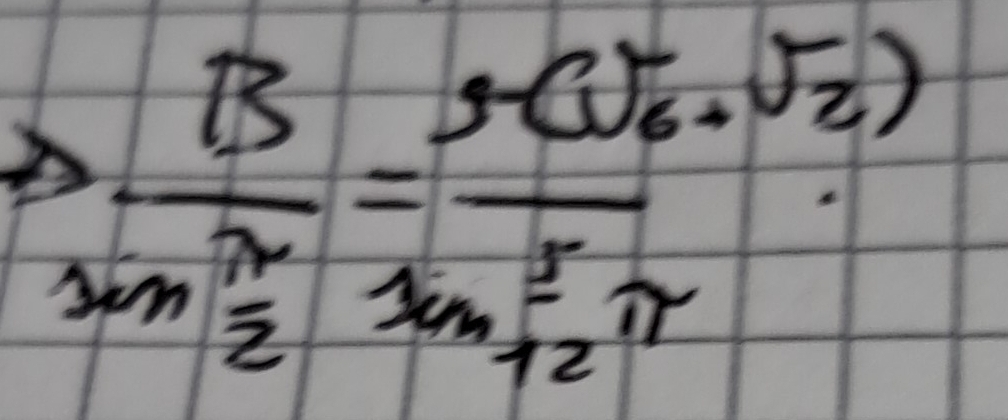 ⇒ B/(sin π/2) = 5(√6+√2)/(sin 5/12 π) .